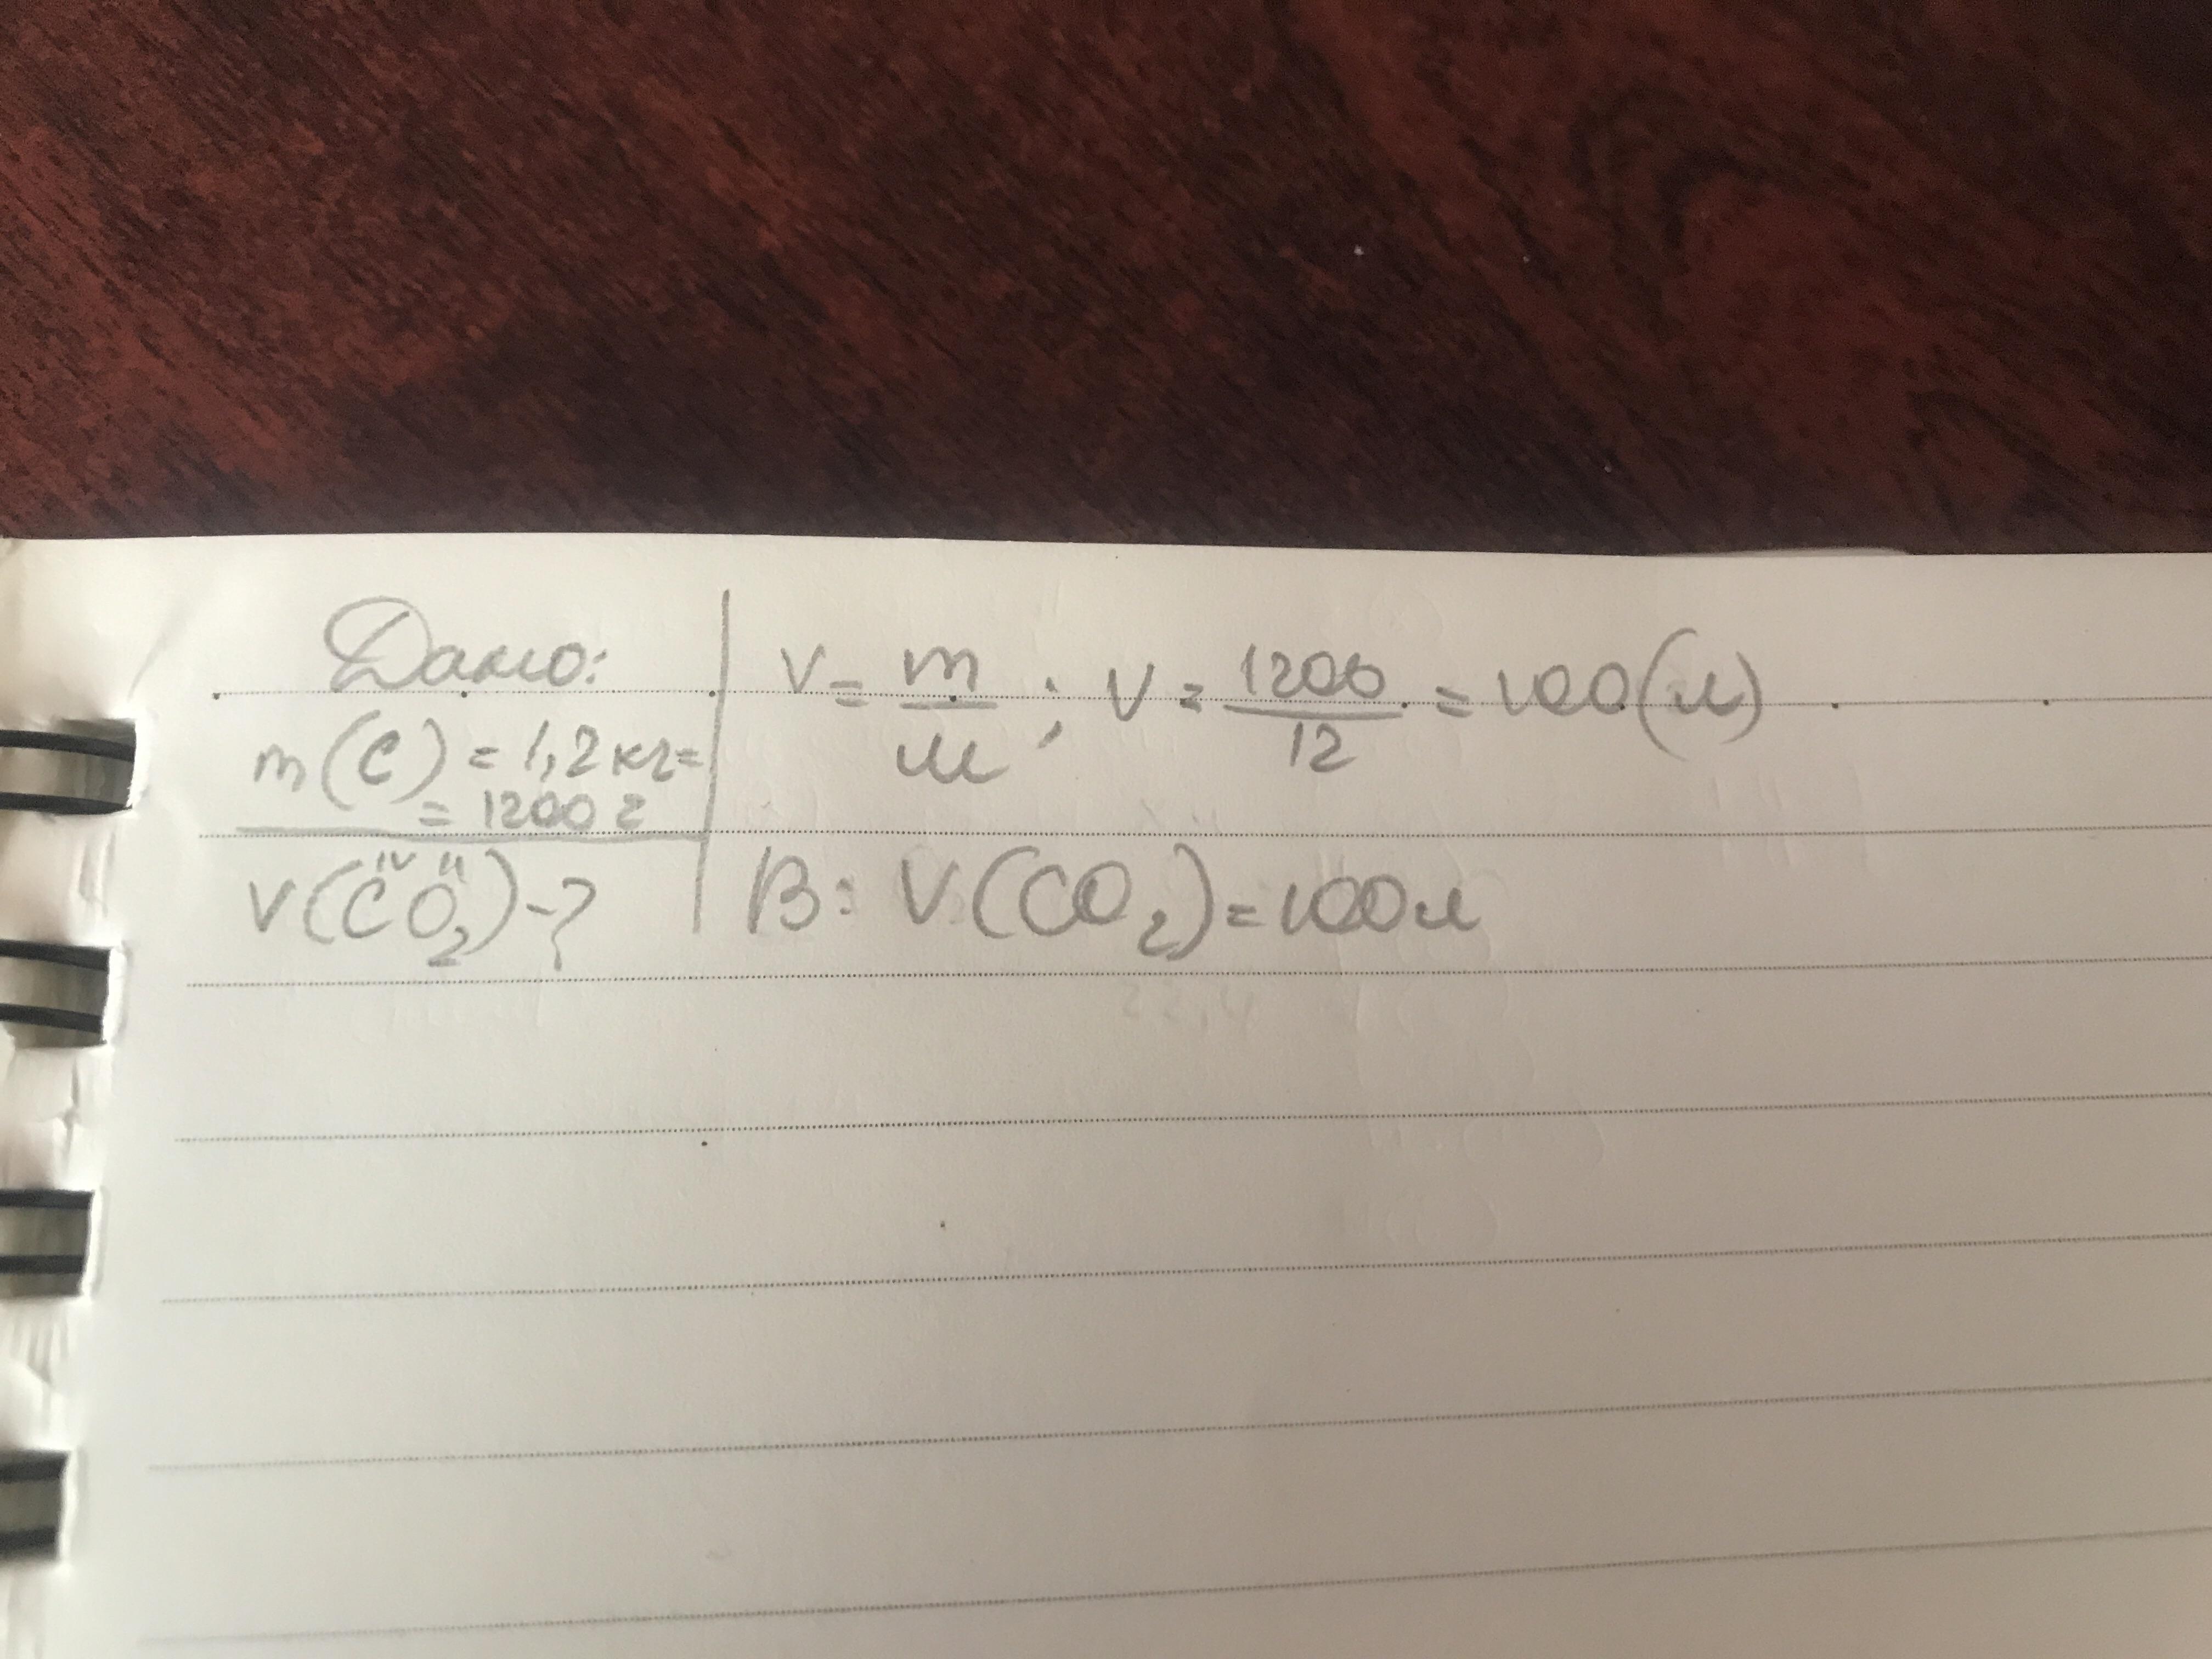 Дано:
m(C) = 1,2 кг =
= 1200 г
V(C^IV O^II_2) - ?
V = m/M ; V = 1200/12 = 100(л)
В: V(CO_2) = 100л